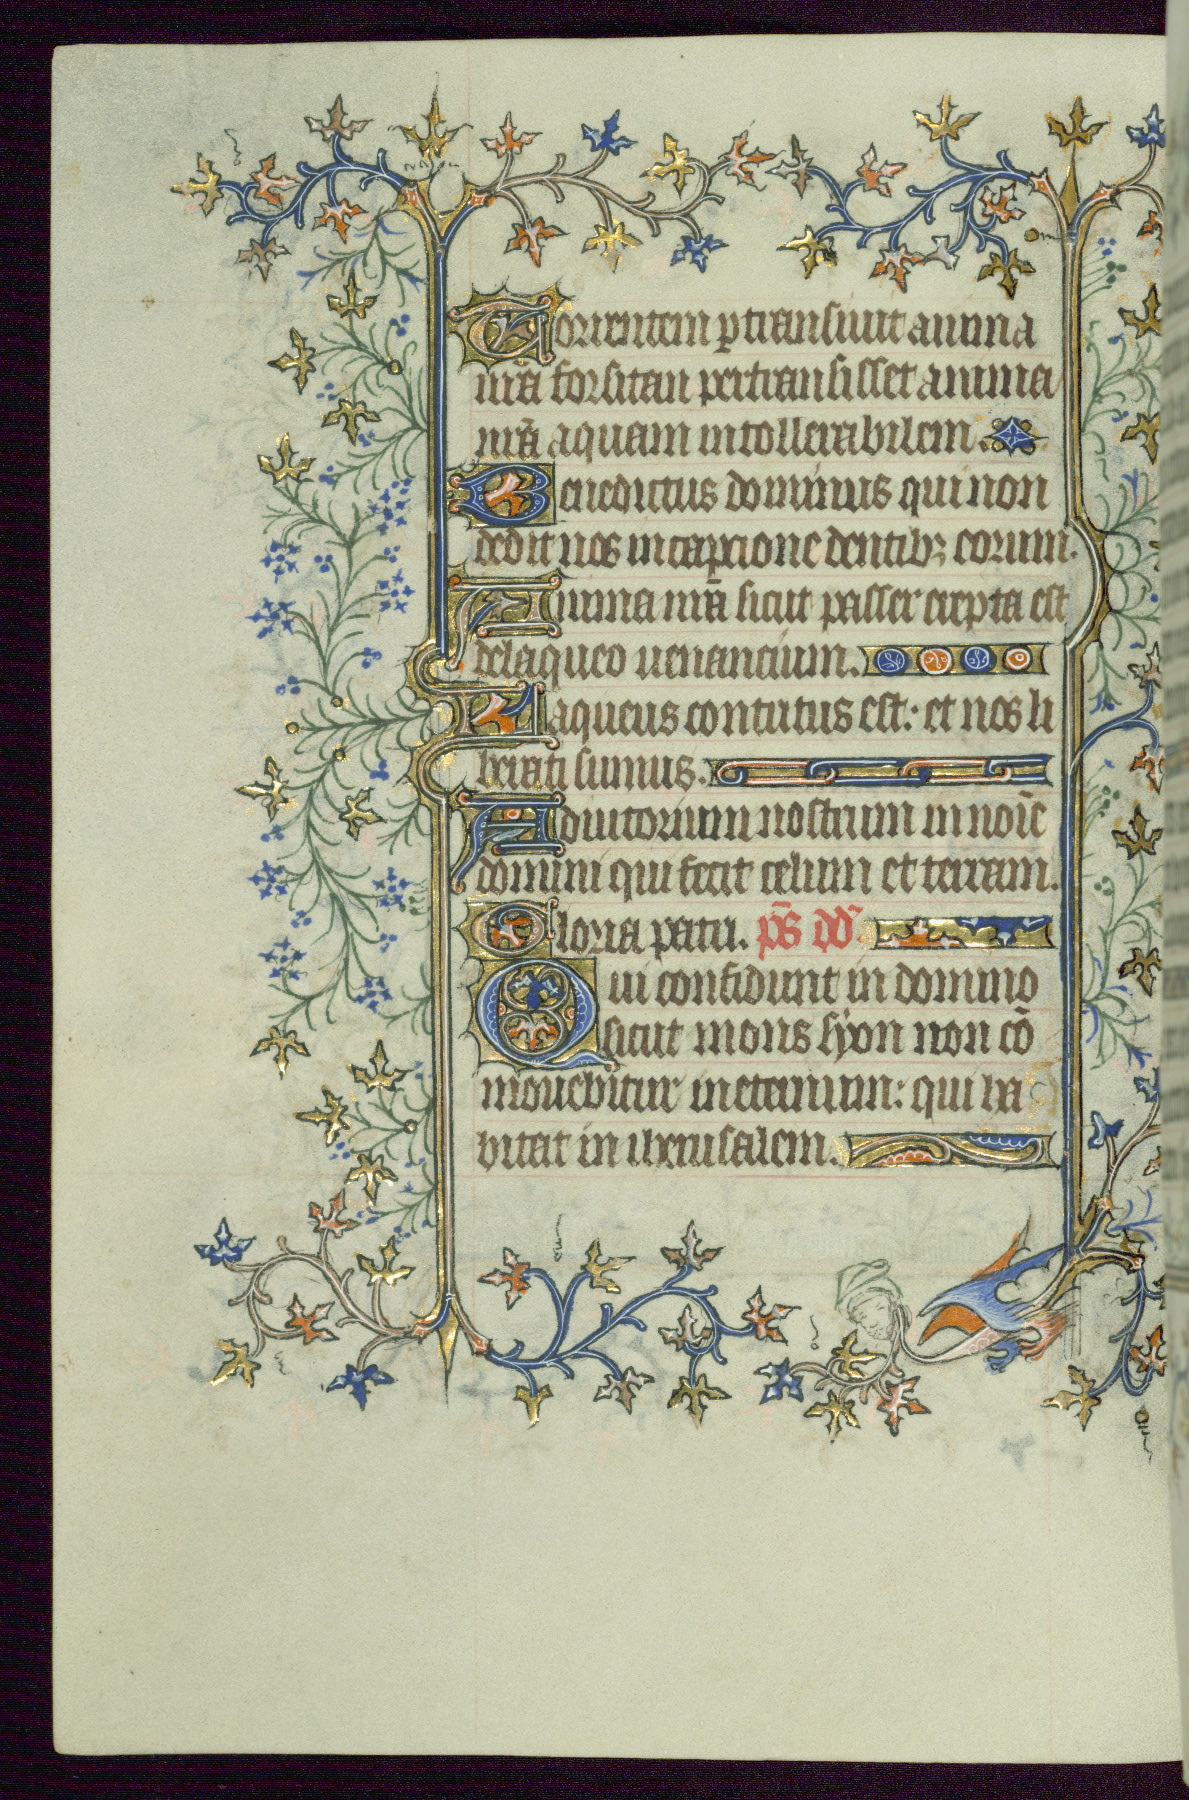 Torrentem ꝑtransiuit anima
nr̄a forsitan pertransisset anima
nr̄a aquam intollerabilem.
Benedictus dominus qui non
dedit nos in captione dentibꝫ eorum.
Anima nr̄a sicut passer erepta est
de laqueo uenancium.
Laqueus contritus est: et nos li
berati sumus.
Adiutorium nostrum in noīe
domini qui fecit celum et terram.
Gloria patri. p̄s dd̄
Qui confidunt in domino
sicut mons syon non cō
mouebitur in eternum: qui ha
bitat in iherusalem.